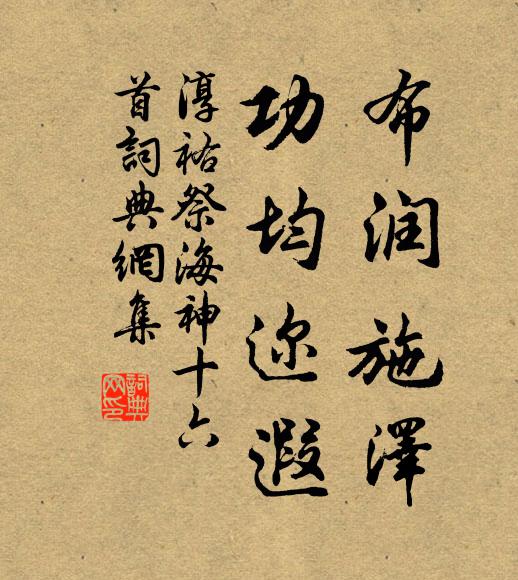 布润施澤
功均迩遐
淳祐祭海神十六
首詞典網集
詞典網印